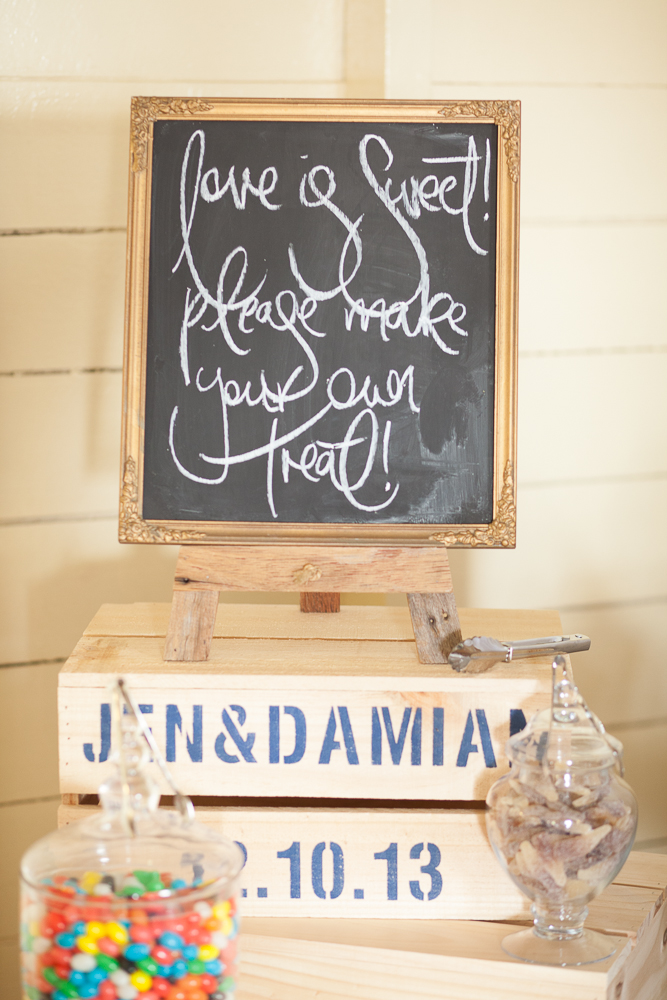 Love is Sweet!
please make
your own
treat!
JEN&DAMIAN
2.10.13